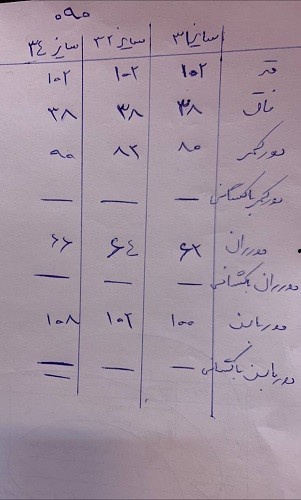 ۰۹۰
سایز ۳۱ سایز ۳۲ سایز ۳۴
قد ۱۰۲ ۱۰۲ ۱۰۲
فاق ۳۸ ۳۸ ۳۸
دورکمر ۸۰ ۸۲ ۹۰
دورکمر باکشسانی — — —
دورران ۶۲ ۶۴ ۶۶
دورران باکشسانی — — —
دورباسن ۱۰۰ ۱۰۲ ۱۰۸
دورباسن باکشسانی — — —